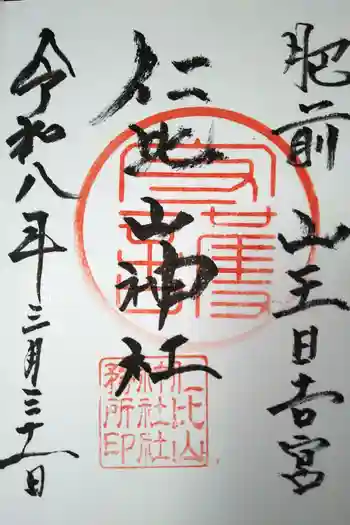 肥前 山王日吉宮
仁比山神社
令和八年三月三十一日
仁比山
神社社
務所印